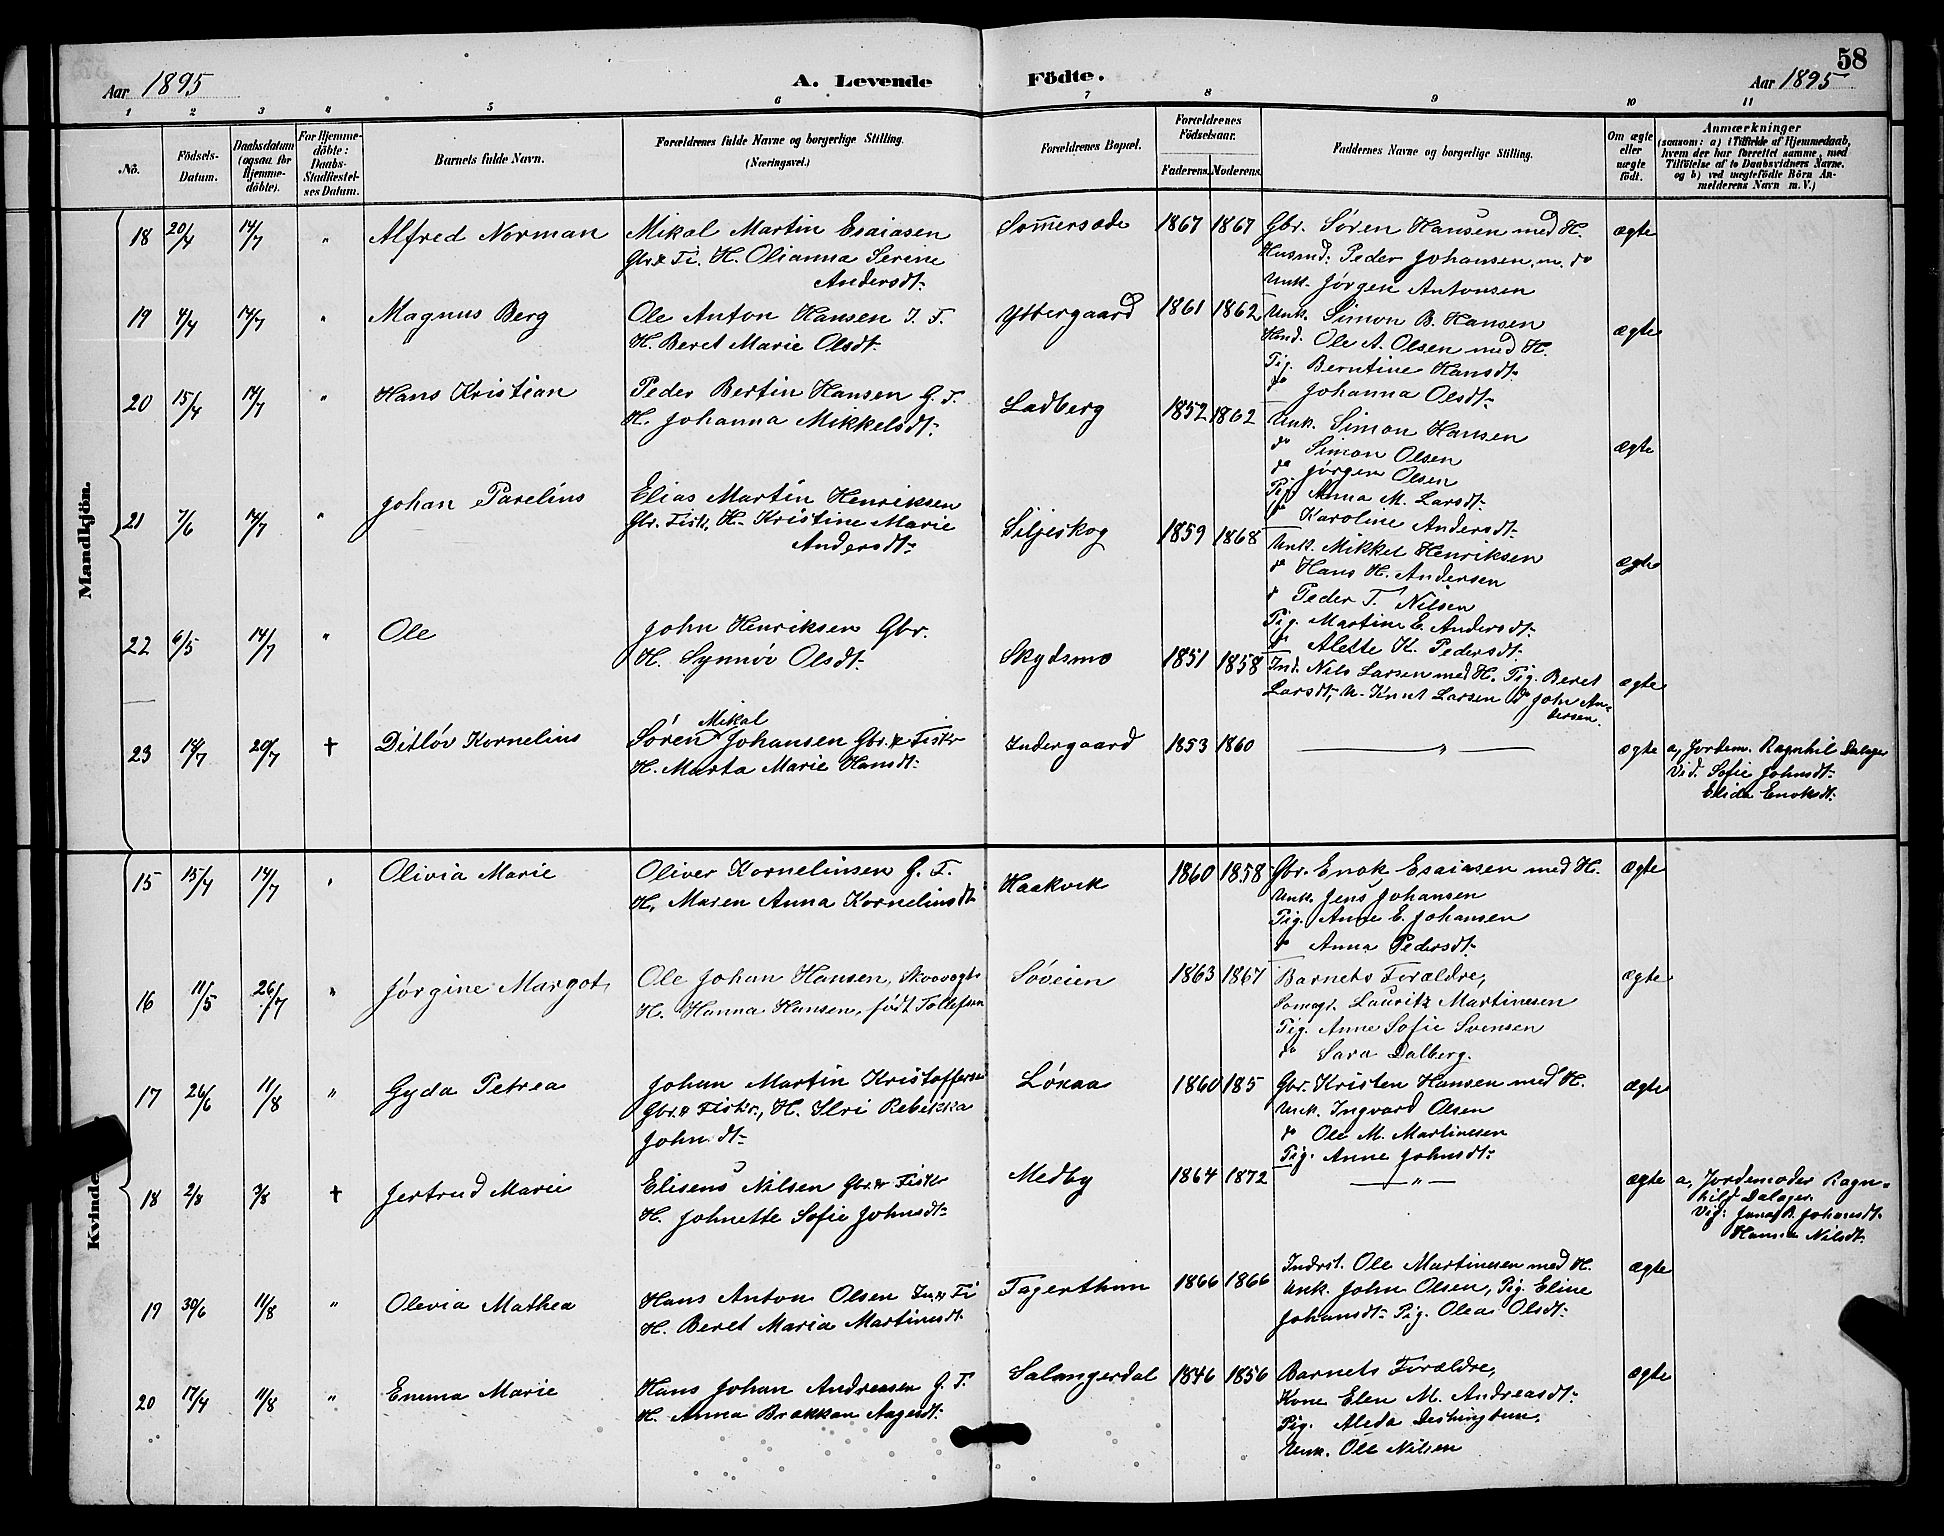 58
Aar 1895 A. Levende Födte. Aar 1895
1 2 3 4 5 6 7 8 9 10 11
No. Födsels-Datum. Daabsdatum (ogsaa for Hjemme-döbte). For Hjemme-döbte: Daabs-Stadfæstel-ses Datum. Barnets fulde Navn. Forældrenes fulde Navne og borgerlige Stilling. (Næringsvei.) Forældrenes Bopæl. Forældrenes Födselsaar. Faderens. Moderens. Faddernes Navne og borgerlige Stilling. Om ægte eller uægte født. Anmærkninger (saasom: a) i Tilfælde af Hjemmedaab, hvem der har forrettet samme, med Tilföielse af to Daabsvidners Navne, og b) ved uægtefödte Börn An-melderens Navn m. V.)
Mandkjön.
18 20/4 14/7 " Alfred Norman Mikal Martin Esaiasen Sommersæde 1867 1867 Gbr. Søren Hansen med H. ægte
Gbr. & Fi. H. Olianna Serine Husmd. Peder Johansen m. do
Andersdt. Unk. Jørgen Antonsen
19 4/4 14/7 " Magnus Berg Ole Anton Hansen I. F. Yttergaard 1861 1862 Unk. Simon B. Hansen ægte
H. Beret Marie Olsdt. Hmd. Ole A. Olsen med H.
Pig. Berntine Hansdt.
do Johanna Olsdt.
20 15/4 14/7 " Hans Kristian Peder Bertin Hansen G. F. Ladberg 1852 1862 Unk. Simon Hansen ægte
H. Johanna Mikkelsdt. do Simon Olsen
do Jørgen Olsen
Pig. Anna M. Larsdt.
do Karoline Andersdt.
21 7/6 14/7 " Johan Parelius Elias Martin Henriksen Siljeskog 1859 1868 Unk. Mikkel Henriksen ægte
Gbr. Fisk. H. Kristine Marie do Hans H. Andersen
Andersdt. do Peder T. Nilsen
Pig. Martine E. Andersdt.
do Alette K. Pedersdt.
22 6/5 14/7 " Ole John Henriksen Gbr. Skydsmo 1851 1858 Ind. Nils Larsen med H. Pig. Beret ægte
H. Synnöv Olsdt. Larsdt, U. Knut Larsen do John An-
dersen.
23 18/7 20/7 † Ditløv Kornelius Søren Mikal Johansen Gbr. & Fiskr Indergaard 1853 1860 " ægte a, Jordem. Ragnhil Dalager
H. Marta Marie Hansdt. Vid. Sofie Johnsdt.
Elida Enoksdt.
Kvindek
15 15/4 14/7 " Olivia Marie Oliver Korneliusen G. F. Haakvik 1860 1858 Gbr. Enok Esaiasen med H. ægte
H. Maren Anna Korneliusdt. Unk. Jens Johansen
Pig. Anne E. Johansen
do Anna Pedersdt.
16 11/5 26/7 " Jørgine Margot Ole Johan Hansen, Skovvogter Søveien 1863 1867 Barnets Forældre, ægte
H. Hanna Hansen, født Tollefsen Lauritz Martinesen
Pig. Anne Sofie Svensen
do Sara Dalberg.
17 26/6 11/8 " Gyda Petrea Johan Martin Kristoffersen Løxaa 1860 185 Gbr. Kristen Hansen med H. ægte
Gbr. & Fiskr., H. Siri Rebekka Unk. Ingvard Olsen
John.dt. do Ole M. Martinesen
Pig. Anne Johnsdt.
18 2/8 3/8 † Jertrud Marie Eliseus Nilsen Gbr. & Fiskr Medby 1864 1872 " ægte a, Jordemoder Ragn-
H. Johnette Sofie Johnsdt. hild Dalager.
Vid: B. Johansdt.
Hansen Nilsdt.
19 30/6 11/8 " Olevia Mathea Hans Anton Olsen In. & Fi Fagerthun 1866 1866 Indrst. Ole Martinesen med H. ægte
H. Beret Maria Martinsdt. Unk. John Olsen, Pig. Eline
Johansdt. Pig. Olea Olsdt.
20 17/4 11/8 " Emma Marie Hans Johan Andreasen G. F. Salangerdal 1846 1856 Barnets Forældre, ægte
H. Anna Brækkan Aagesdt. Kone Elen M. Andreasdt.
Pig. Aleda Deshington,
Unk. Ole Nilsen